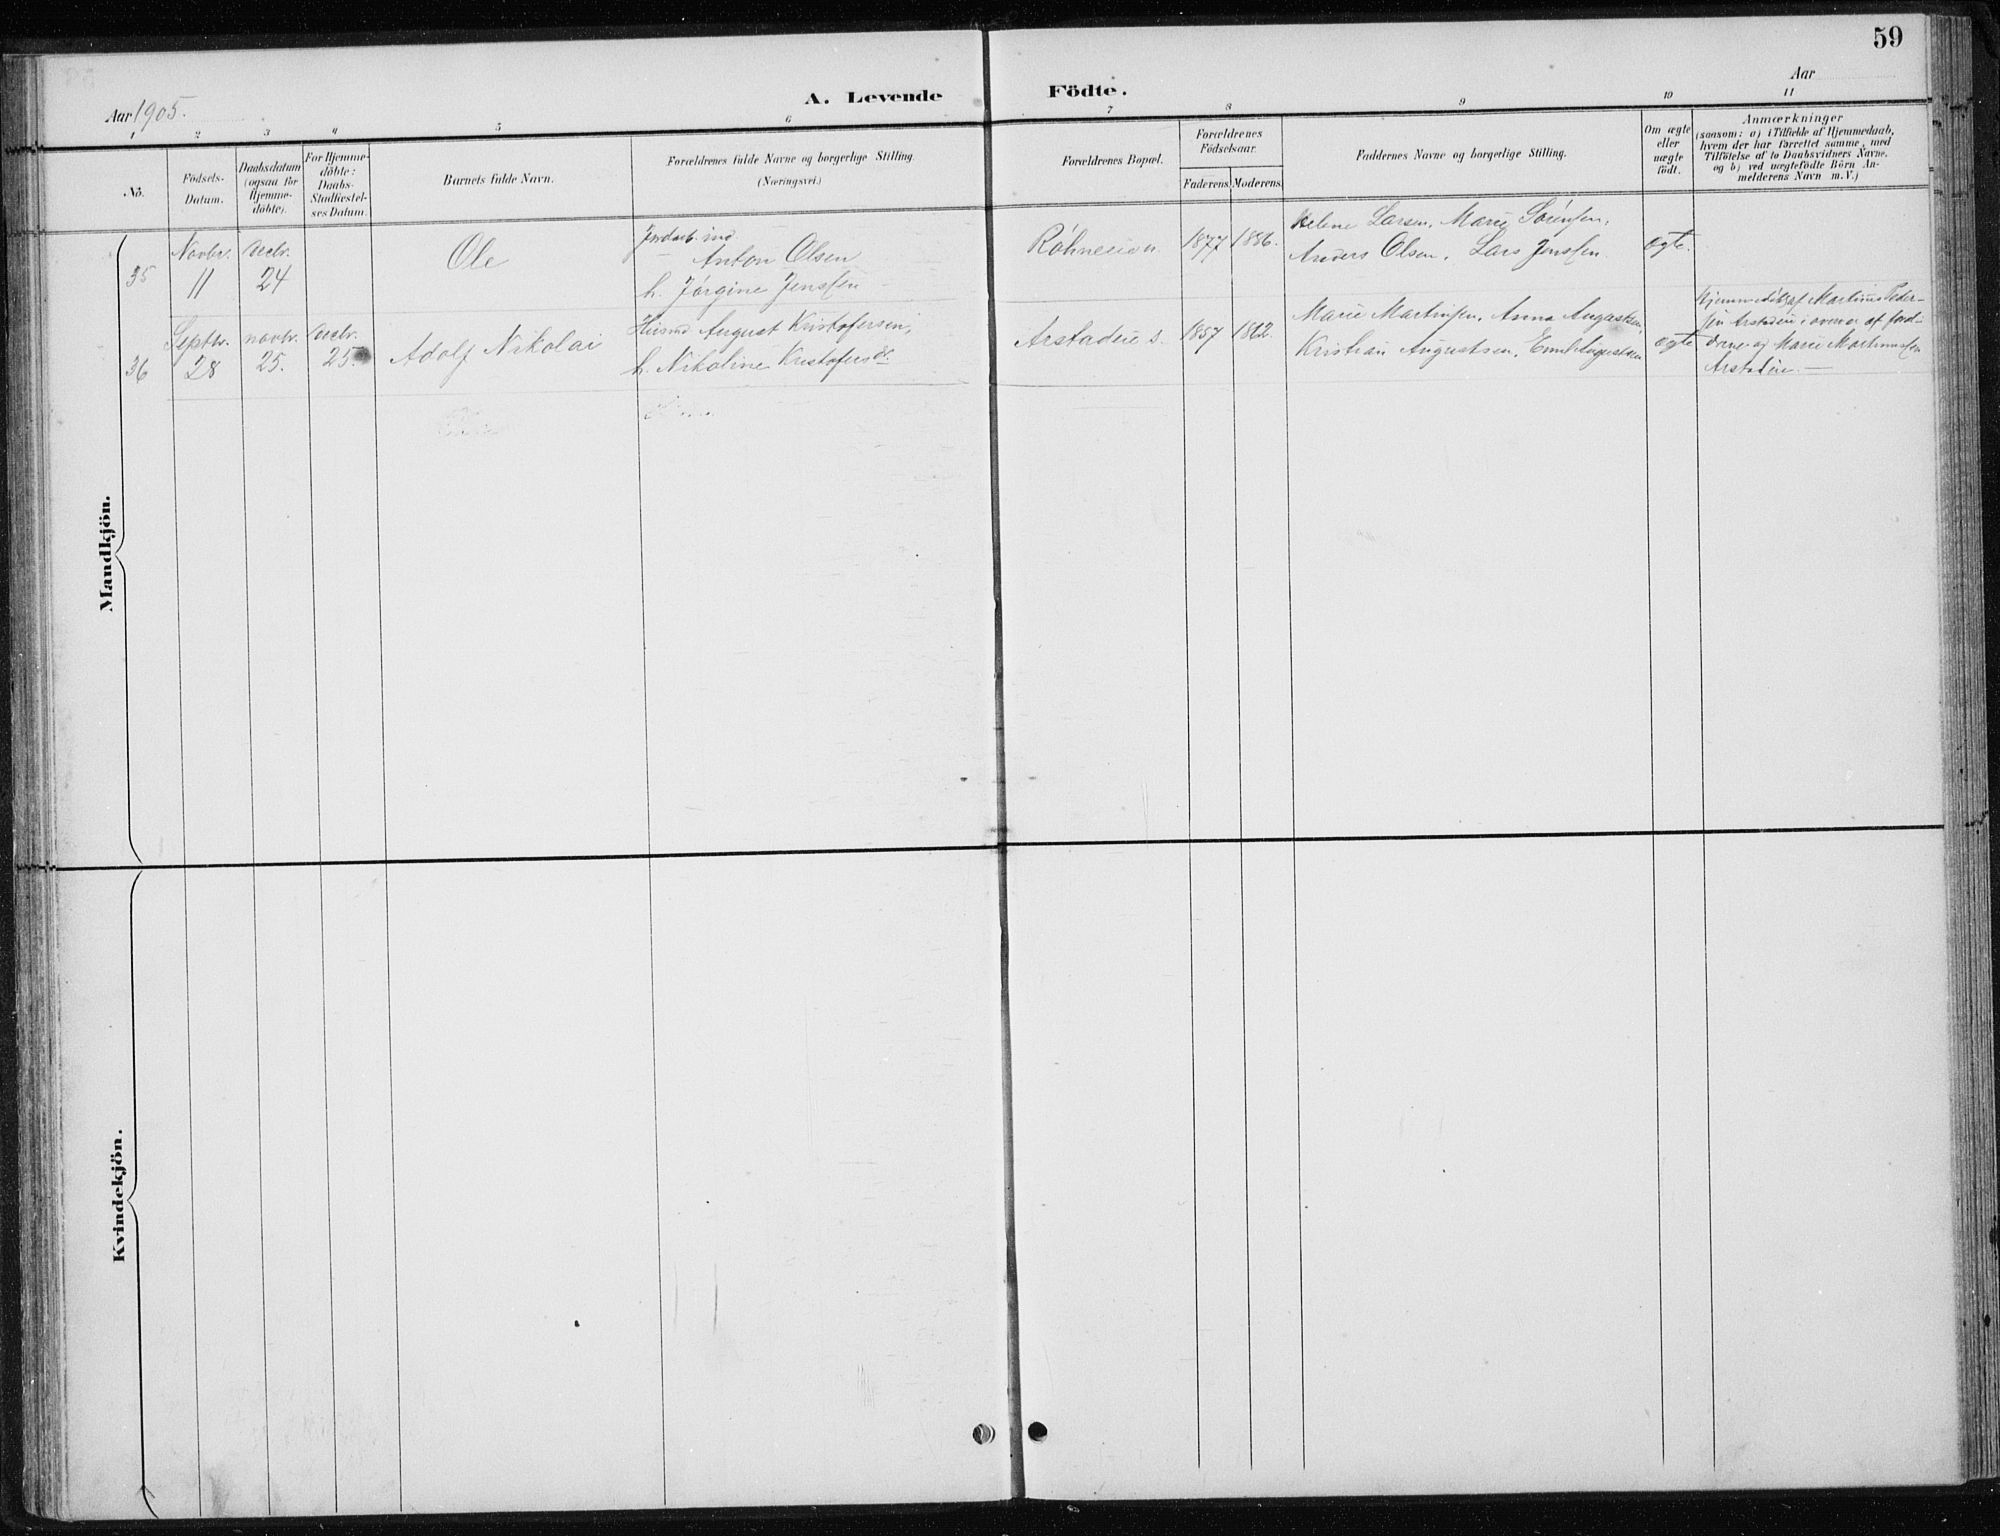 59
Aar 1905.
A. Levende Födte.
Aar
1 2 3 4 5 6 7 8 9 10 11
No.
Födsels-
Datum.
Daabsdatum
(ogsaa for
Hjemme-
döbte).
For Hjemme-
döbte:
Daabs-
Stadfæstel-
ses Datum.
Barnets fulde Navn.
Forældrenes fulde Navne og borgerlige Stilling.
(Næringsvei.)
Forældrenes Bopæl.
Forældrenes
Födselsaar.
Faderens Moderens
Faddernes Navne og borgerlige Stilling.
Om ægte
eller
uægte
födt.
Anmærkninger
(saasom: a) i Tilfælde af Hjemmedaab,
hvem der har forrettet samme, med
Tilföielse af to Daabsvidners Navne,
og b) ved uægtefödte Börn An-
melderens Navn m. V.)
Mandkjön.
35
Novbr.
11
Decbr.
24
Ole
Anton Olsen
h. Jørgine Jenssen
1877
Helene Larsen, Marie Sörensen,
Anders Olsen, Lars Jenssen
ægte.
36
Septbr.
28
novbr.
25.
decbr.
25.
Adolf Nikolai
Husmd August Kristofersen,
h. Nikoline Kristofersdr
1857
1862
Marie Martinsen, Anna Augustsen,
Kristian Augustsen, Emil Augustsen
ægte
Hjemmedöbt af Martinus Peder-
sen Arstadeie i overvær af foræl-
drene og Marie Martinussen
Arstadeie. —
Kvindekjön.